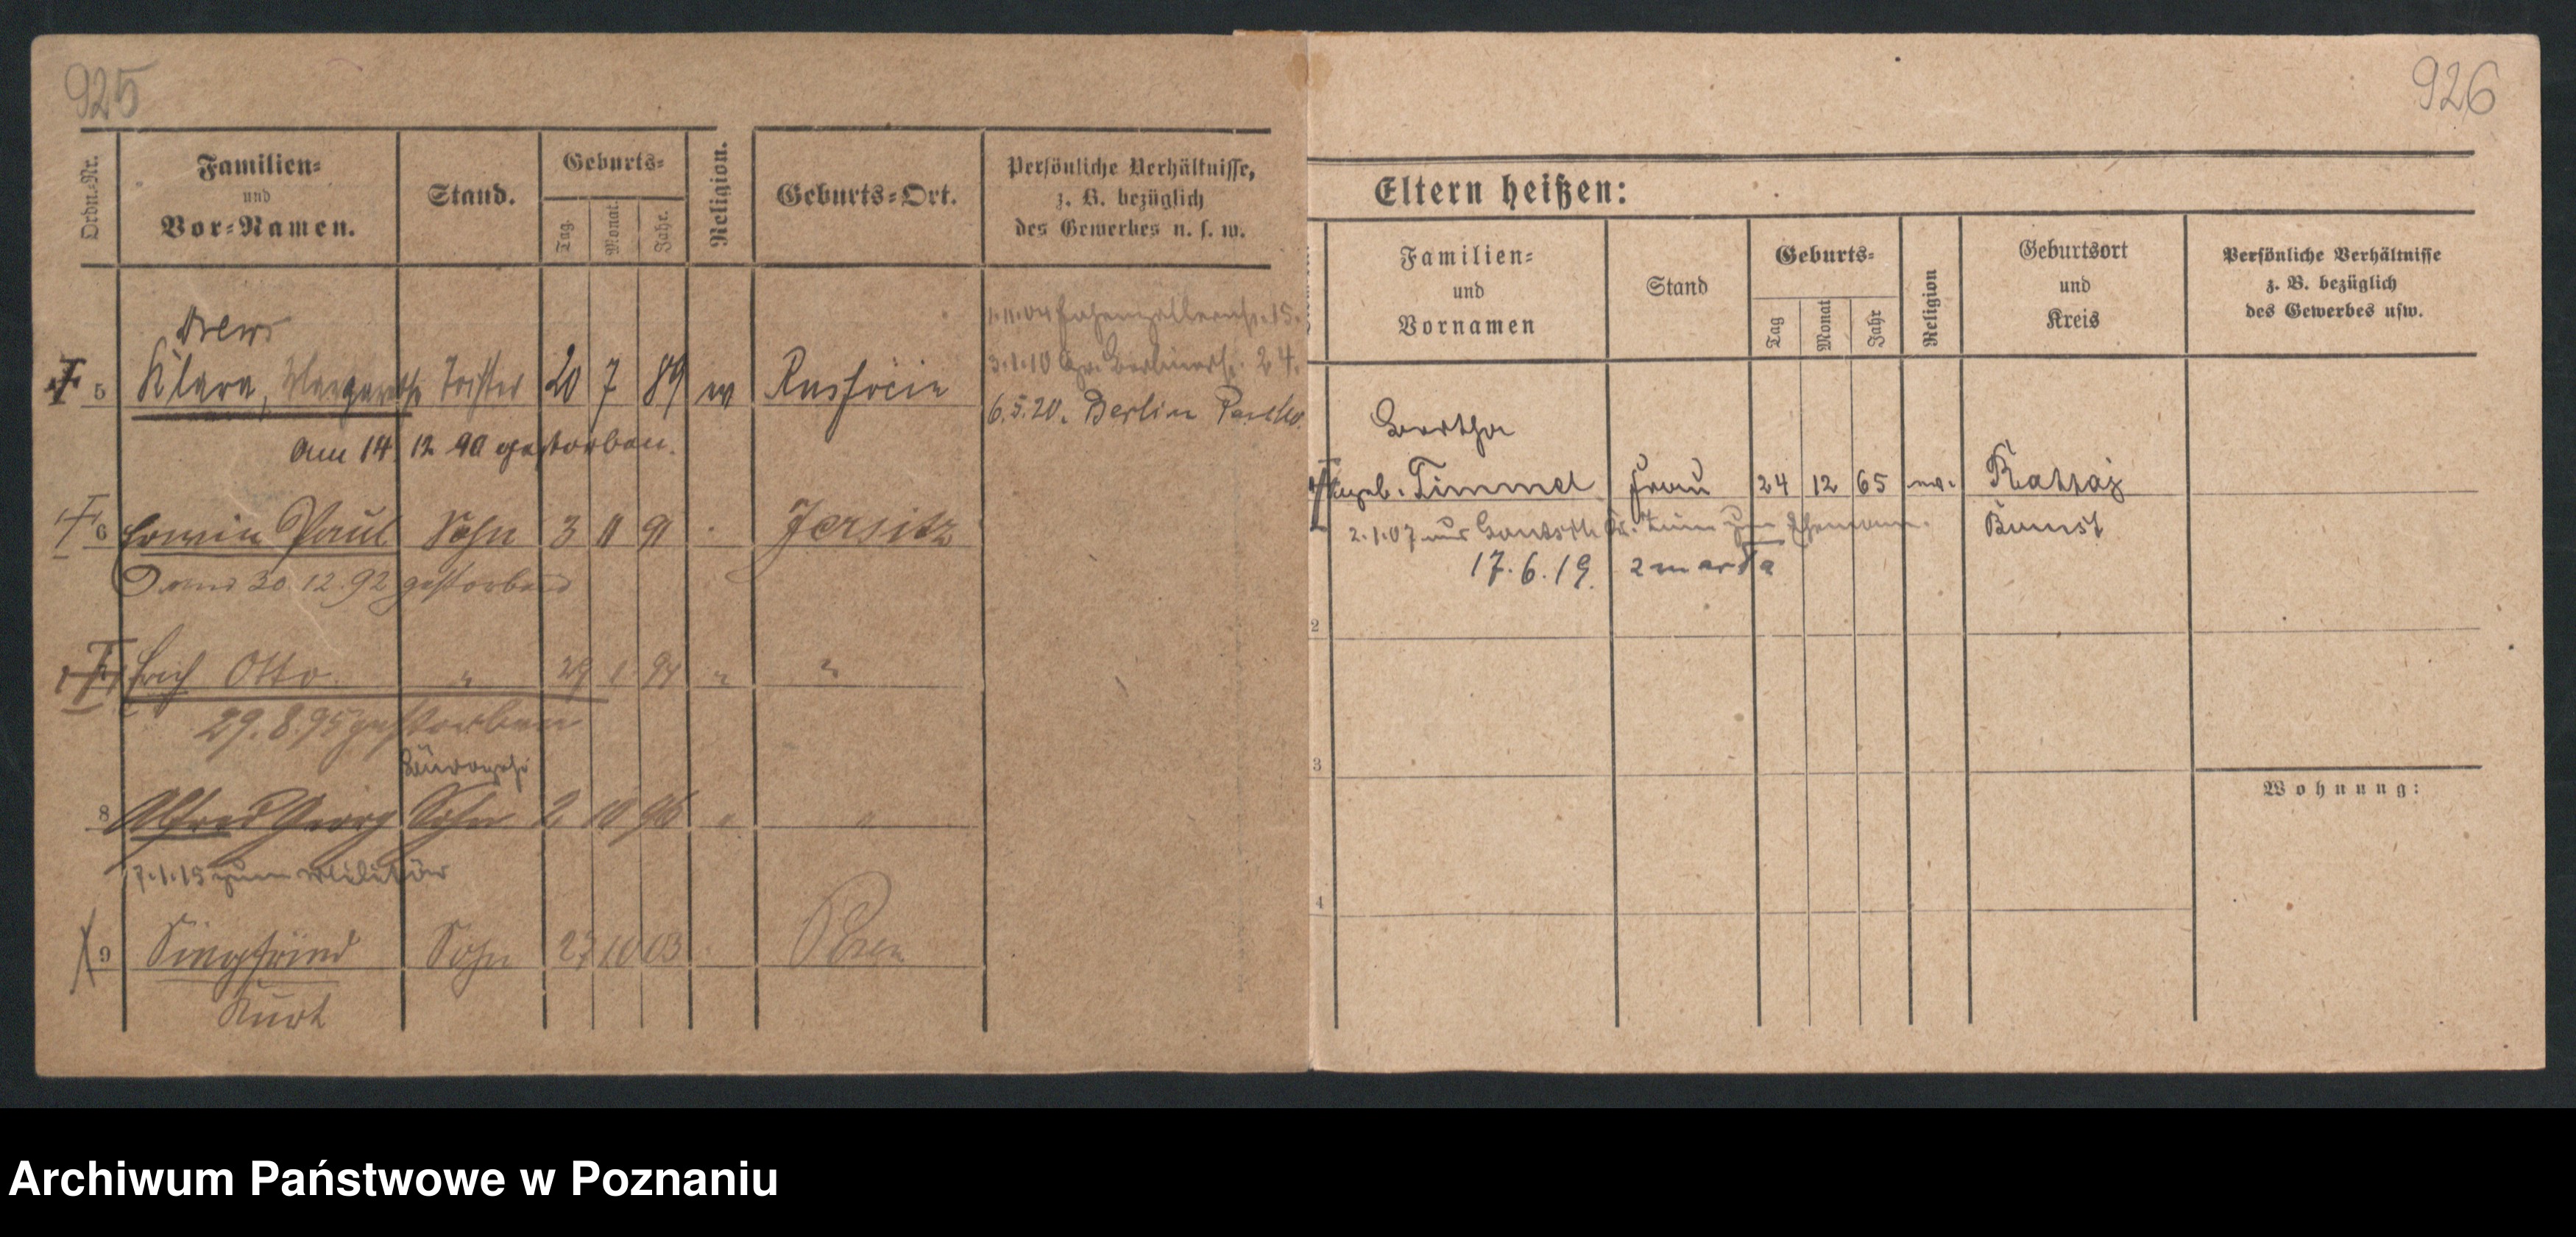 925
Ordn.-Nr.
Familien-
und
Vor-Namen.
Stand.
Geburts-
Tag.
Monat.
Jahr.
Religion.
Geburts-Ort.
Persönliche Verhältnisse,
z. B. bezüglich
des Gewerbes u. s. w.
Drews
5 Klara, Margarethe Tochter 20 7 89 Russocin
3.1.10 Gr. Berlinerstr. 24.
6.5.20. Berlin
am 14 12 90 gestorben.
6 Erwin Paul Sohn 3 11 91 Jersitz
30.12.92 gestorben
Erich Otto " 29 1 94 " "
29.8.95 gestorben
8 Alfred Georg Sohn 2 10 96 " "
7.1.15 zum Militär
9 Siegfried Sohn 27 10 03 Posen
Kurt
926
Eltern heißen:
Familien-
und
Vornamen
Stand
Geburts-
Tag
Monat
Jahr
Religion
Geburtsort
und
Kreis
Persönliche Verhältnisse
z. B. bezüglich
des Gewerbes usw.
Bertha
geb. Timmel Frau 24 12 65
Bomst
2.1.07 zum Ehemann.
17.6.19. zmarła
2
3
Wohnung:
4
Archiwum Państwowe w Poznaniu